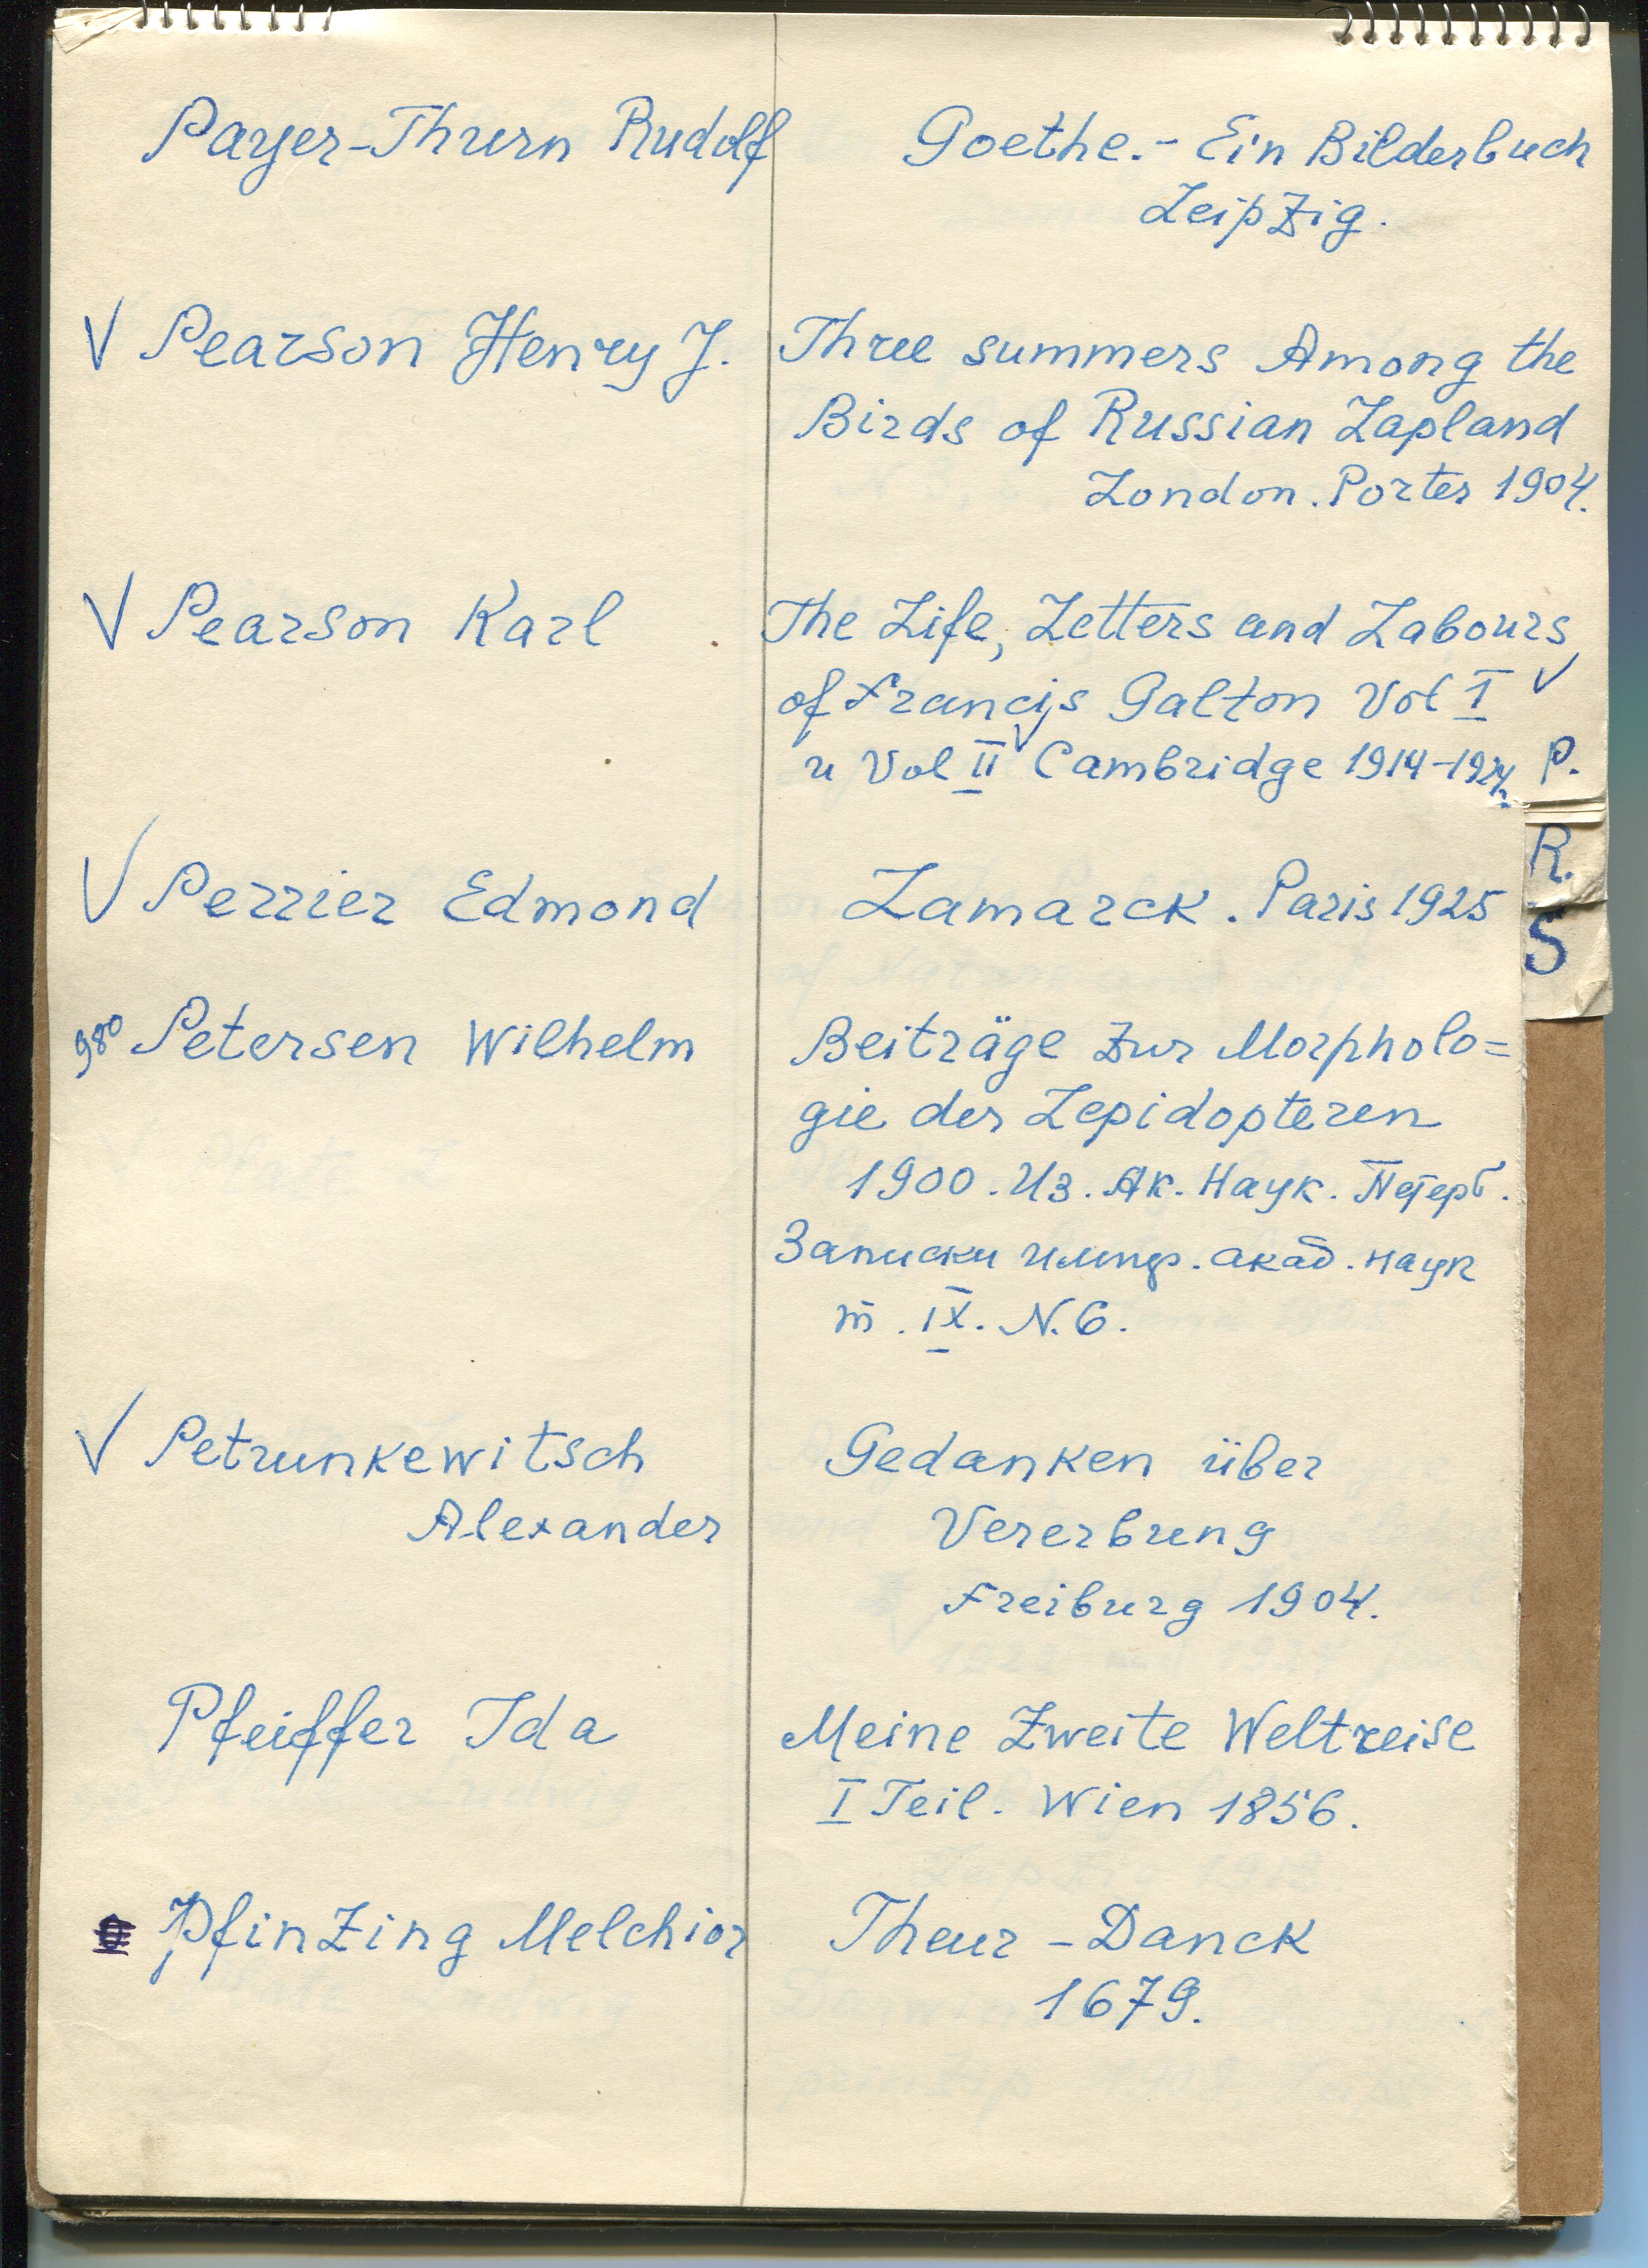 Payer-Thurn Rudolf
Goethe.- Ein Bilderbuch
Leipzig.
V Pearson Henry J.
Three summers Among the
Birds of Russian Lapland
London. Porter 1904.
V Pearson Karl
The Life, Letters and Labours
of Francis Galton Vol I V
и Vol II V Cambridge 1914-1924.
P.
R.
S
V Perrier Edmond
Lamarck. Paris 1925
980 Petersen Wilhelm
Beiträge zur Morpholo=
gie der Lepidopteren
1900. Из. Ак. Наук. Петерб.
Записки импер. акад. наук
т. IX. N. 6.
V Petrunkewitsch
Alexander
Gedanken über
Vererbung
Freiburg 1904.
Pfeiffer Ida
Meine Zweite Weltreise
I Teil. Wien 1856.
Pfinzing Melchior
Theur - Danck
1679.